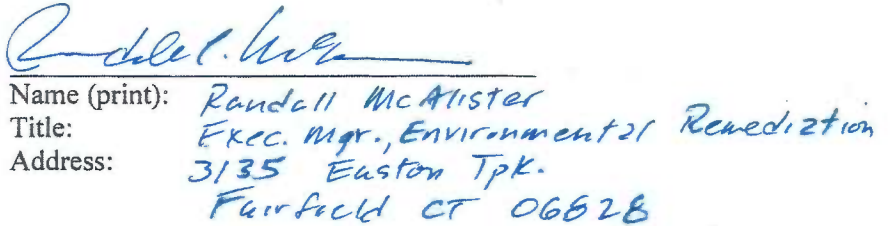 Name (print): Randall McAlister
Title: Exec. Mgr., Environmental Remediation
Address: 3135 Easton Tpk.
Fairfield CT 06828